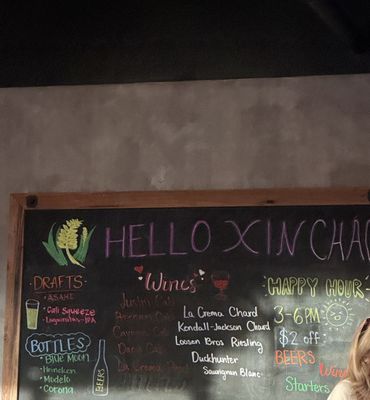 HELLO XIN CHÀ
DRAFTS
ASAHI
Cali Squeeze
Lagunitas-IPA
BOTTLES
BLUE MOON
Heineken
Modelo
Corona
BEER
WINES
Justin Cab
La Crema
La Crema Chard
Kendall-Jackson Chard
Loosen Bros Riesling
Duckhunter
Sauvignon Blanc
HAPPY HOUR
3-6PM
$2 off
BEERS
Wine
Starters